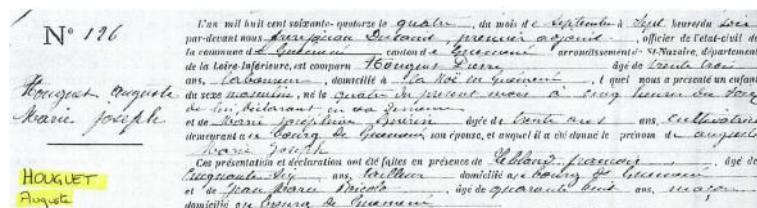 N° 126
Houguet Auguste
Marie Joseph
HOUGUET
Auguste
L'an mil huit cent soixante-quatorze le quatre, du mois de Septembre à Sept heures du soir
par-devant nous Durand, premier adjoint, officier de l'état-civil de
la commune de Guémené canton de Guémené arrondissement de St-Nazaire, département
de la Loire-Inférieure, est comparu Houguet Pierre âgé de trente trois
ans, laboureur, domicilié à la Noë en Guémené, lequel nous a présenté un enfant
du sexe masculin, né le quatre du présent mois à cinq heures du soir
de lui déclarant en sa demeure
et de Marie Joséphine âgée de trente ans, cultivatrice
demeurant au bourg de Guémené son épouse, et auquel il a été donné le prénom de Auguste
Marie Joseph
Ces présentation et déclaration ont été faites en présence de Leblanc François, âgé de
cinquante six ans, tailleur domicilié au bourg de Guémené
et de Jean Marie âgé de quarante huit ans, maçon
domicilié au bourg de Guémené